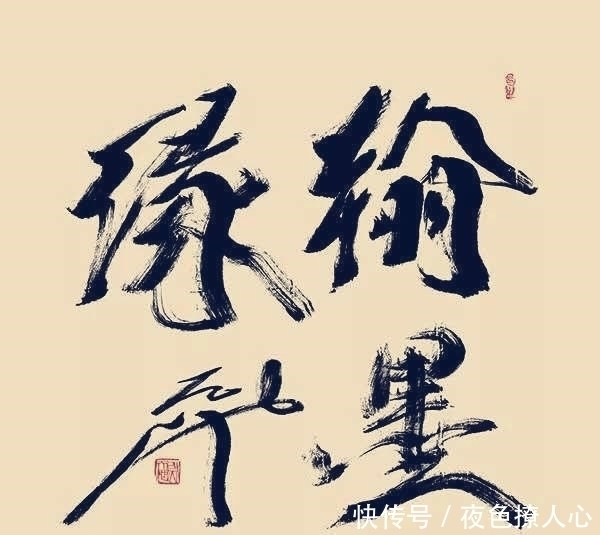 翰墨
缘
快传号／夜色撩人心